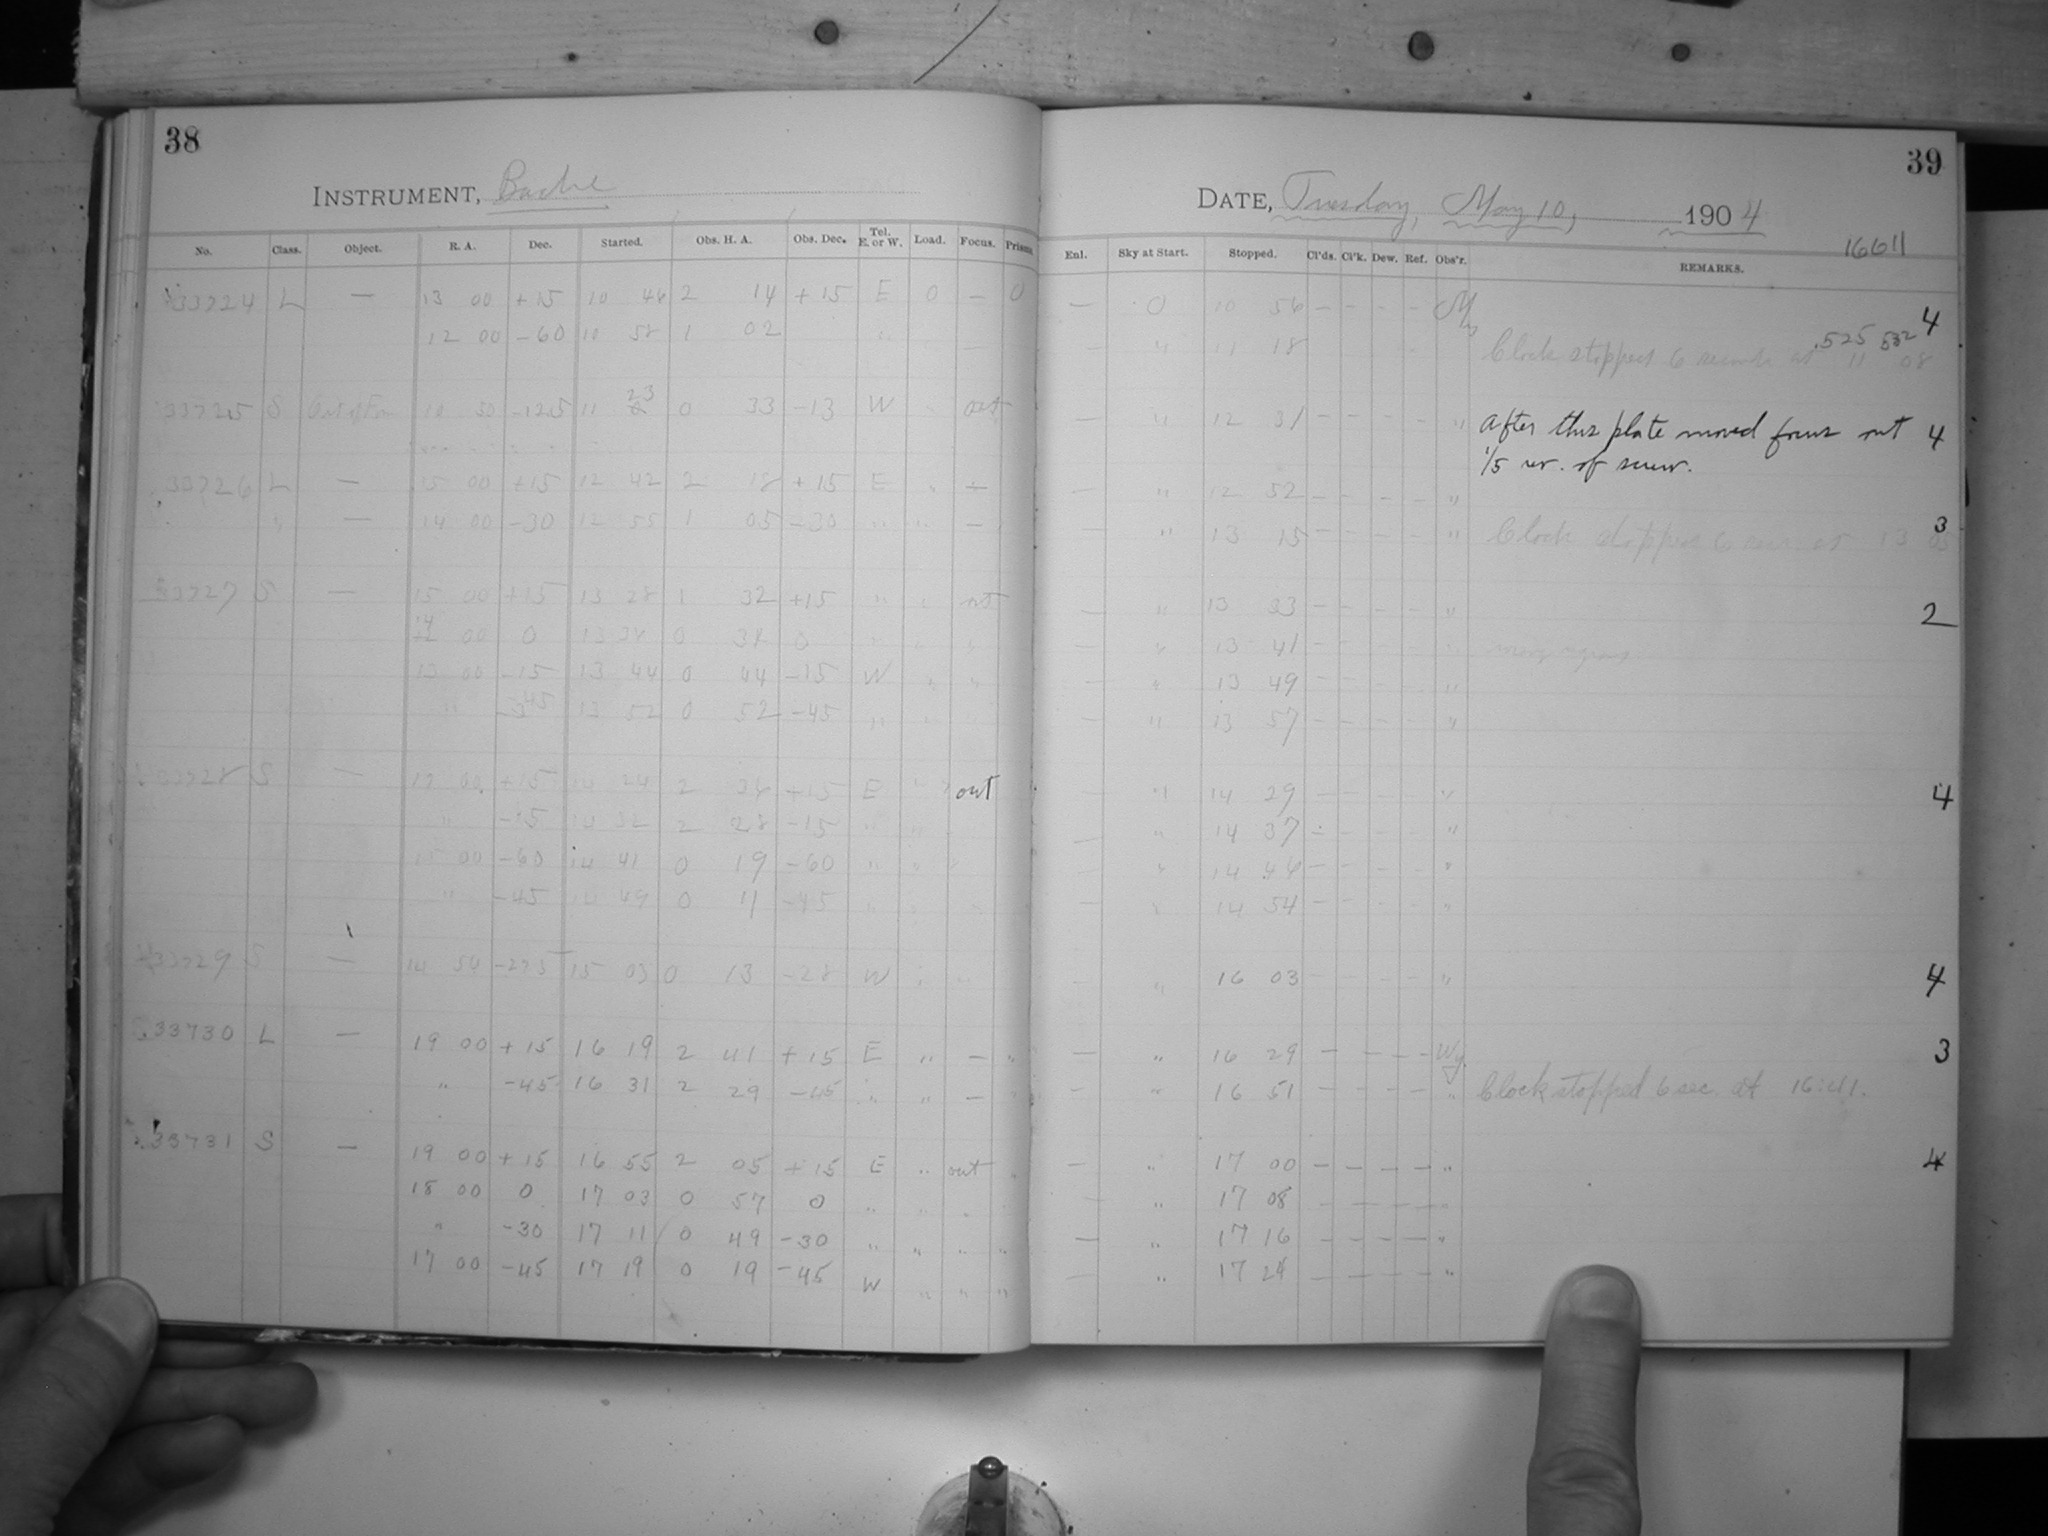 38
INSTRUMENT, Bache
No. Class. Object. R. A. Dec. Started. Obs. H. A. Obs. Dec. Tel. E. or W. Load. Focus. Prism.
33724 L — 13 00 +15 10 46 2 14 +15 E 0 — 0
12 00 -60 10 58 1 02 "
33725 S Out of Foc 10 50 -12.5 11 23 0 33 -13 W " out
33726 L — 15 00 +15 12 42 2 18 +15 E " —
" — 14 00 -30 12 55 1 05 -30 " " —
33727 S — 15 00 +15 13 28 1 32 +15 " " out
14 00 0 13 36 0 38 0 " " "
13 00 -15 13 44 0 44 -15 W " "
" -45 13 52 0 52 -45 " " "
33728 S — 17 00 +15 14 24 2 36 +15 E " out
" -15 14 32 2 28 -15 " "
15 00 -60 14 41 0 19 -60 " " "
" -45 14 49 0 11 -45 " " "
33729 S — 14 54 -27.5 15 03 0 13 -28 W " "
33730 L — 19 00 +15 16 19 2 41 +15 E " — "
" -45 16 31 2 29 -45 " " — "
33731 S — 19 00 +15 16 55 2 05 +15 E " out "
18 00 0 17 03 0 57 0 " " " "
" -30 17 11 0 49 -30 " " " "
17 00 -45 17 19 0 19 -45 W " " "
39
DATE, Tuesday, May 10, 1904
16611
Enl. Sky at Start. Stopped. Cl'ds. Cl'k. Dew. Ref. Obs'r. REMARKS.
— 0 10 56 — — — — 4
" 11 18 Clock stopped 6 seconds at 11 08 .525 532
— " 12 31 — " After this plate moved focus out 4
1/5 rev. of screw.
— " 12 52 — — — — "
— " 13 15 — — — — " Clock stopped 6 sec. at 13 05 3
— " 13 33 — — — — " 2
— " 13 41 — — — — "
— " 13 49 — — — — "
— " 13 57 — — — — "
— " 14 29 — — — — " 4
— " 14 37 — — — — "
— " 14 46 — — — — "
— " 14 54 — — — — "
— " 16 03 — — — — " 4
— " 16 29 — — — — Wy. 3
— " 16 51 — — — — " Clock stopped 6 sec. at 16:41.
— " 17 00 — — — — " 4
— " 17 08 — — — — "
— " 17 16 — — — — "
— " 17 24 — — — — "